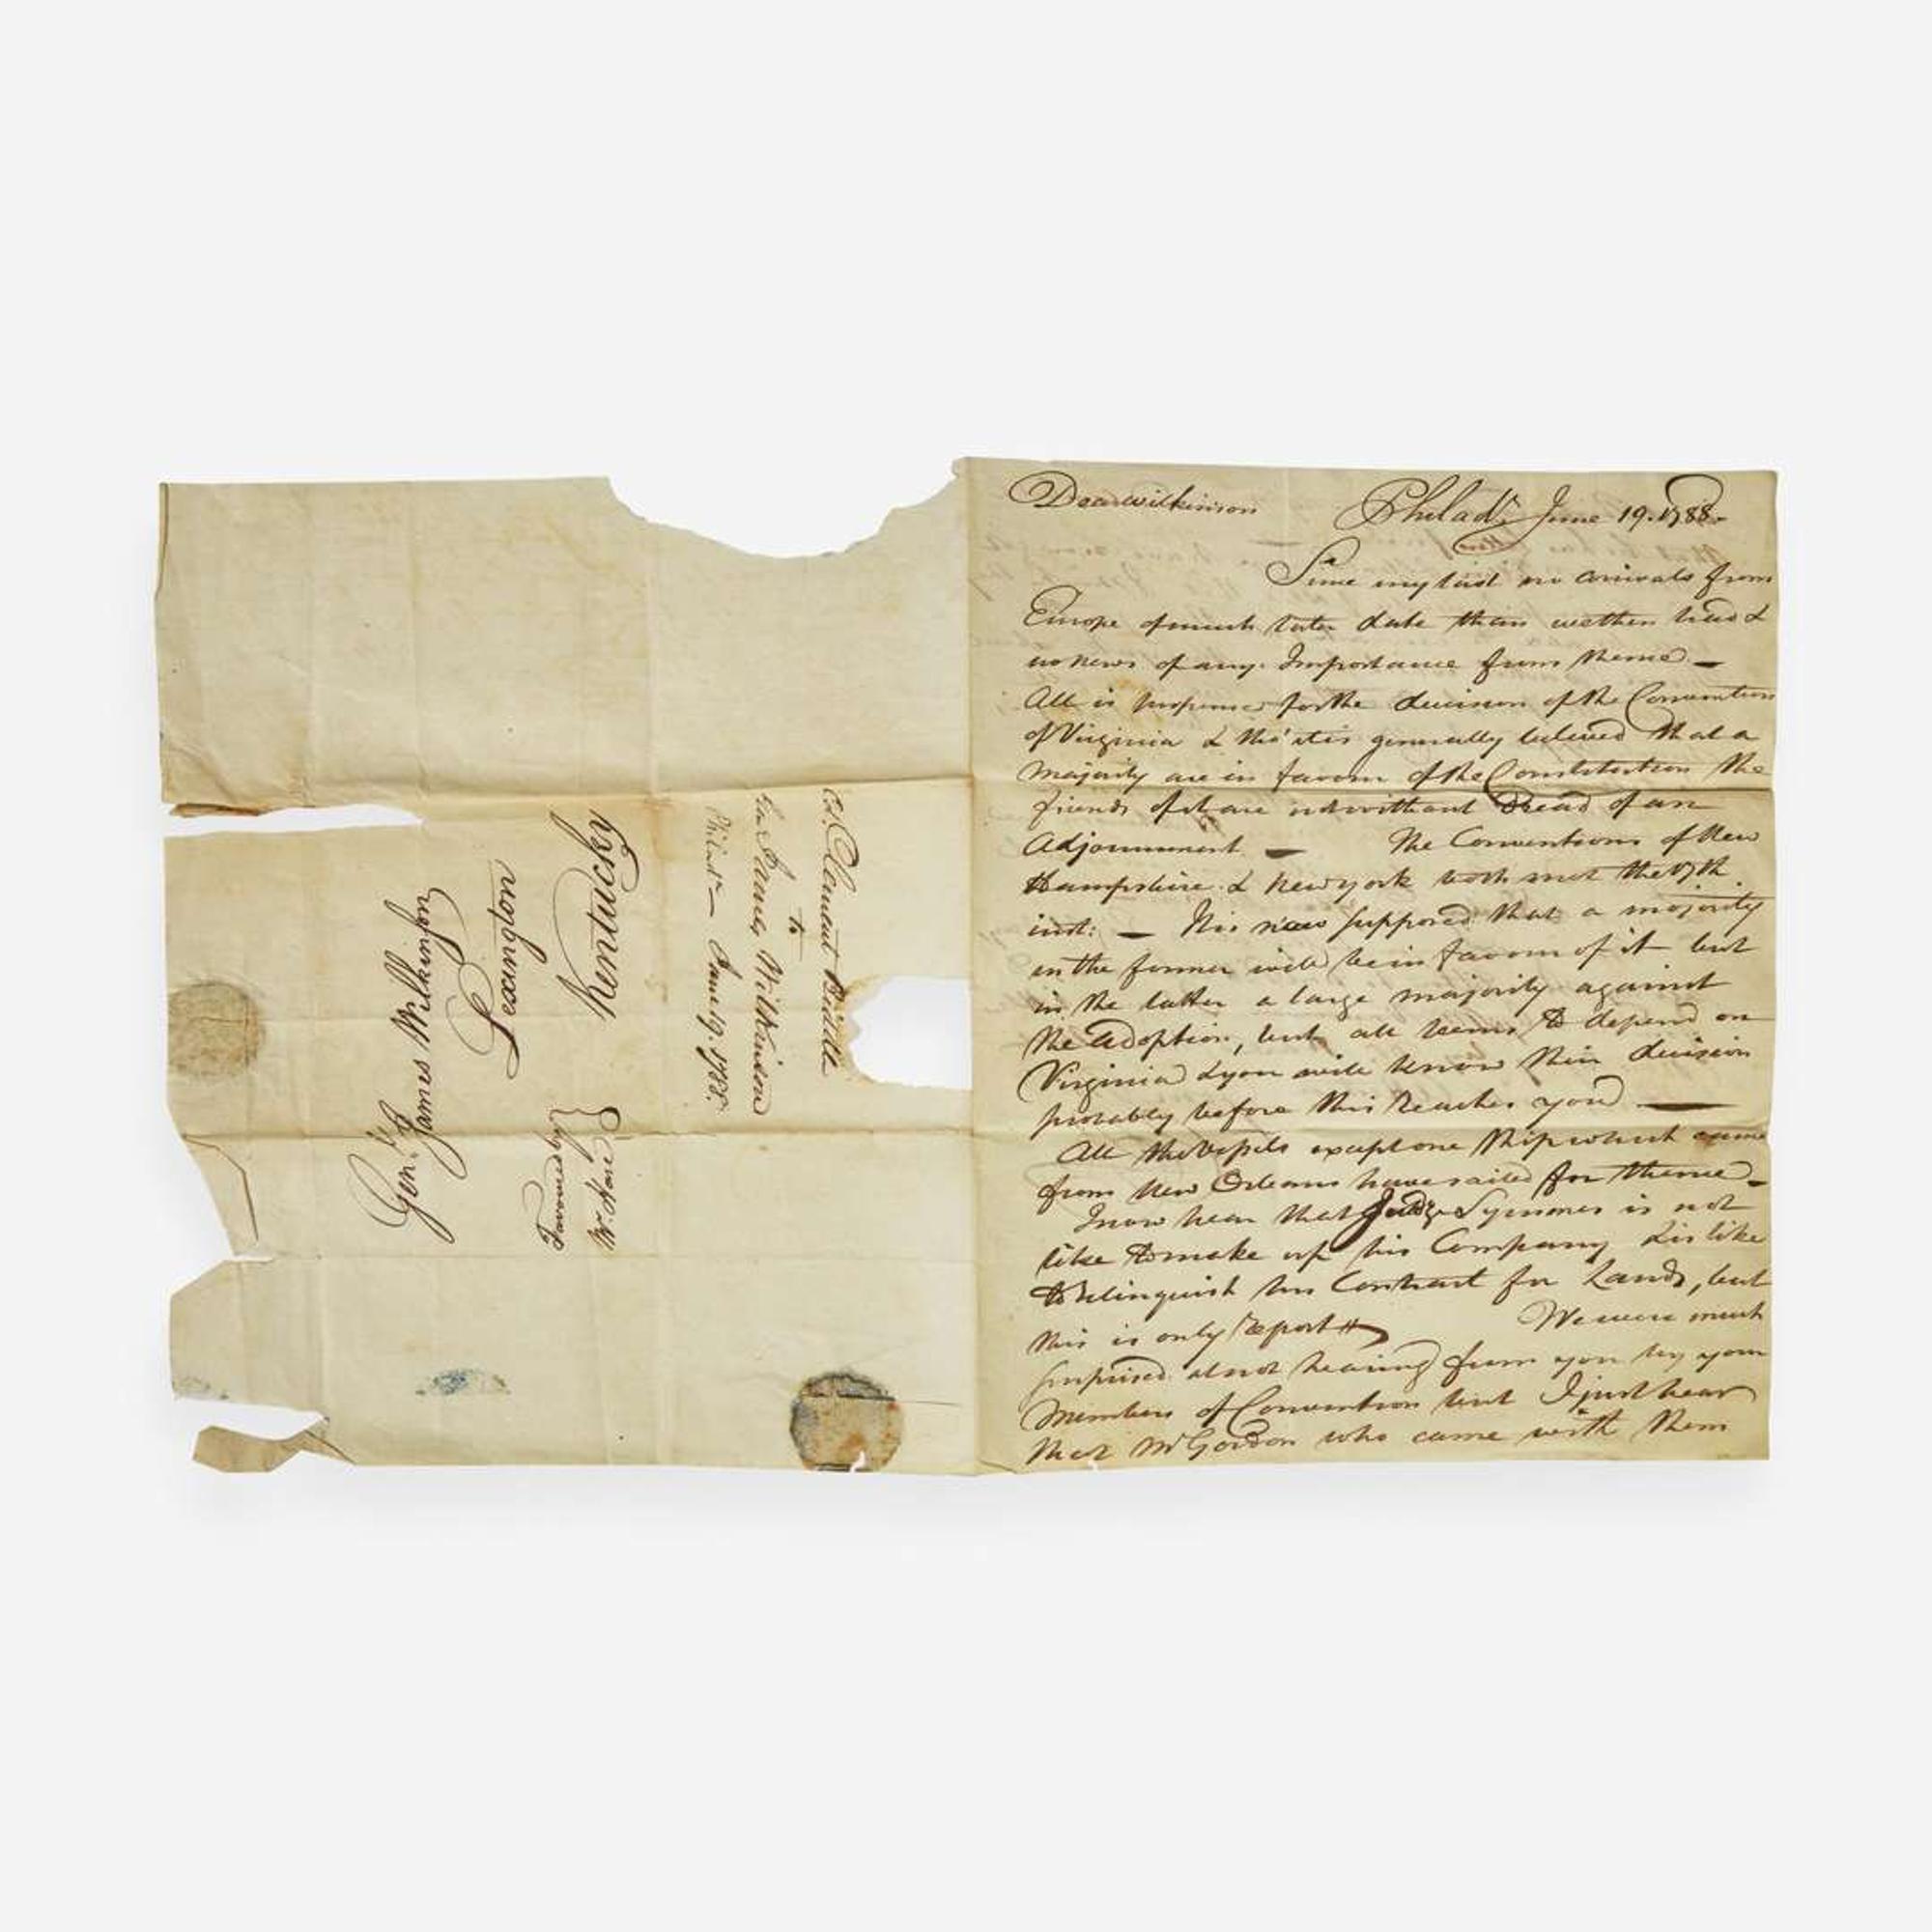 Genl
James Wilkinson
Lexington
Kentucky
Favoured by
Mr. Hare
Philada — June 19. 1788.
Genl James Wilkinson
to
Col. Clement Biddle
Dear Wilkinson
Philada. June 19. 1788.
Since my last no arrivals from
Europe of much later date than we then had &
no news of any Importance from thence —
All is suspense for the decision of the Convention
of Virginia & tho' it is generally believed that a
Majority are in favour of the Constitution the
friends of it are not without Dread of an
Adjournment — The Conventions of New
Hampshire & New york both met the 17th
inst: — It is now supposed that a majority
in the former will be in favour of it but
in the latter a large majority against
the Adoption, but all seems to depend on
Virginia & you will know their decision
probably before this Reaches you —
All the Vessels except one Ship which came
from New Orleans have sailed for thence —
I now hear that Judge Symmes is not
like to make up his Company & is like
to relinquish his Contract for Lands, but
this is only Report We were much
surprised at not hearing from you by your
Members of Convention but I just hear
that Mr Gordon who came with them